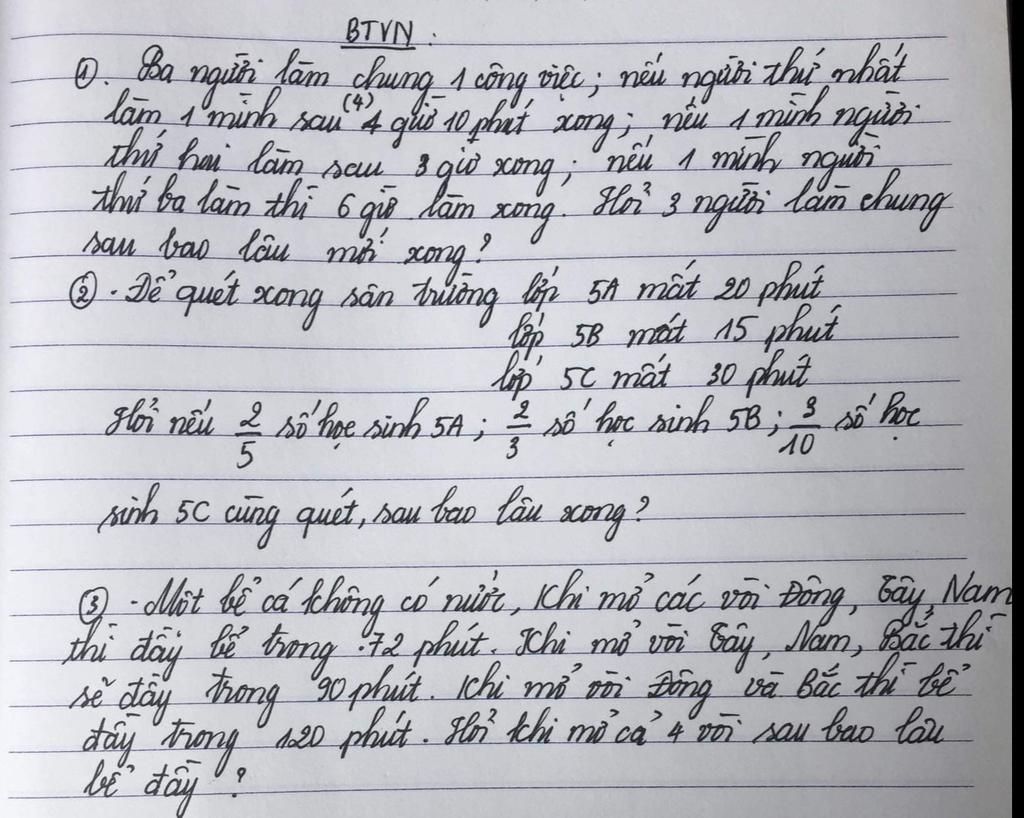 BTVN :
①. Ba người làm chung 1 công việc; nếu người thứ nhất
làm 1 mình sau (4) 4 giờ 10 phút xong; nếu 1 mình người
thứ hai làm sau 3 giờ xong; nếu 1 mình người
thứ ba làm thì 6 giờ làm xong. Hỏi 3 người làm chung
sau bao lâu mới xong?
②. Để quét xong sân trường lớp 5A mất 20 phút
lớp 5B mất 15 phút
lớp 5C mất 30 phút
Hỏi nếu 2/5 số học sinh 5A; 2/3 số học sinh 5B; 3/10 số học
sinh 5C cùng quét, sau bao lâu xong?
③. Một bể cá không có nước, khi mở các vòi Đông, Tây, Nam
thì đầy bể trong 72 phút. Khi mở vòi Tây, Nam, Bắc thì
sẽ đầy trong 90 phút. Khi mở vòi Đông và Bắc thì bể
đầy trong 120 phút. Hỏi khi mở cả 4 vòi sau bao lâu
bể đầy?